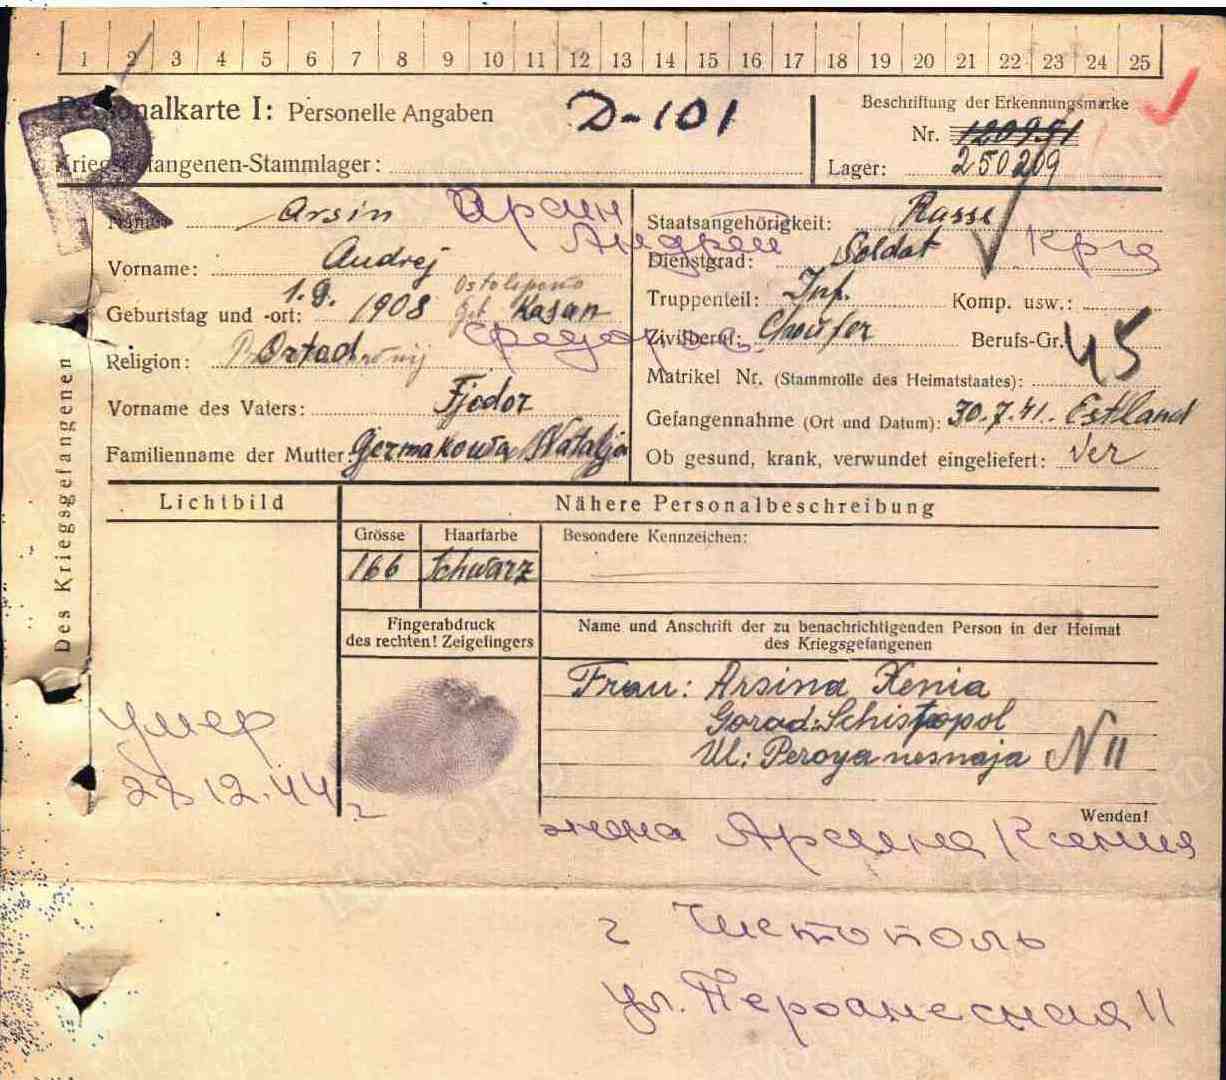 1 2 3 4 5 6 7 8 9 10 11 12 13 14 15 16 17 18 19 20 21 22 23 24 25
R
Personalkarte I: Personelle Angaben
D-101
Beschriftung der Erkennungsmarke
Nr. 120991
Kriegsgefangenen-Stammlager:
Lager: 250209
Name: Arsin Арсин
Staatsangehörigkeit: Russe
Андрей
Vorname: Andrej
Dienstgrad: Soldat
Geburtstag und -ort: 1.9. 1908 Kasan
Truppenteil: Inf. Komp. usw.:
Zivilberuf: Choufer Berufs-Gr. 45
Religion: Ortod
Matrikel Nr. (Stammrolle des Heimatstaates):
Vorname des Vaters: Fjodor
Gefangennahme (Ort und Datum): 30.7.41. Estland
Familienname der Mutter: Germakowa Natalja
Ob gesund, krank, verwundet eingeliefert: Ver
Des Kriegsgefangenen
Lichtbild
Nähere Personalbeschreibung
Grösse Haarfarbe Besondere Kennzeichen:
166 Schwarz
Fingerabdruck
des rechten! Zeigefingers
Name und Anschrift der zu benachrichtigenden Person in der Heimat
des Kriegsgefangenen
Frau: Arsina Xenia
Gorad: Schistopol
Ul: Peroya nesnaja N 11
умер
28.12.44 г
Wenden!
жена Арсина Ксения
г Чистополь
ул. Пероанесная 11